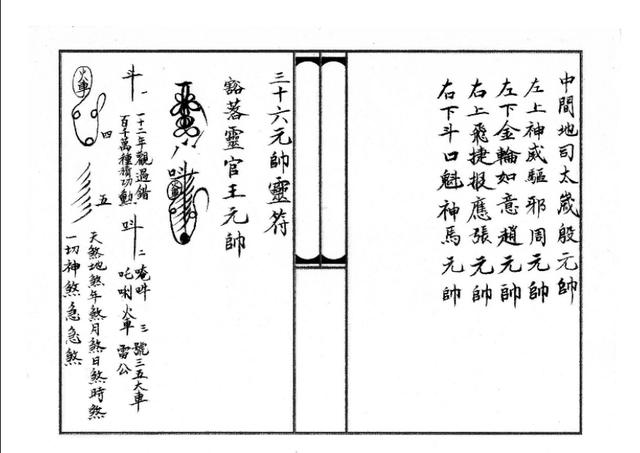 中間地司太歲殷元帥
左上神威驅邪周元帥
左下金輪如意趙元帥
右上飛捷報應張元帥
右下斗口魁神馬元帥
三十六元帥靈符
豁落靈官王元帥
斗 一
十二年觀過錯
百千萬種積功勳
吽 二
唵吽吒唎火車雷公
三
號三五火車
火車 四
五
天煞地煞年煞月煞日煞時煞
一切神煞急急煞